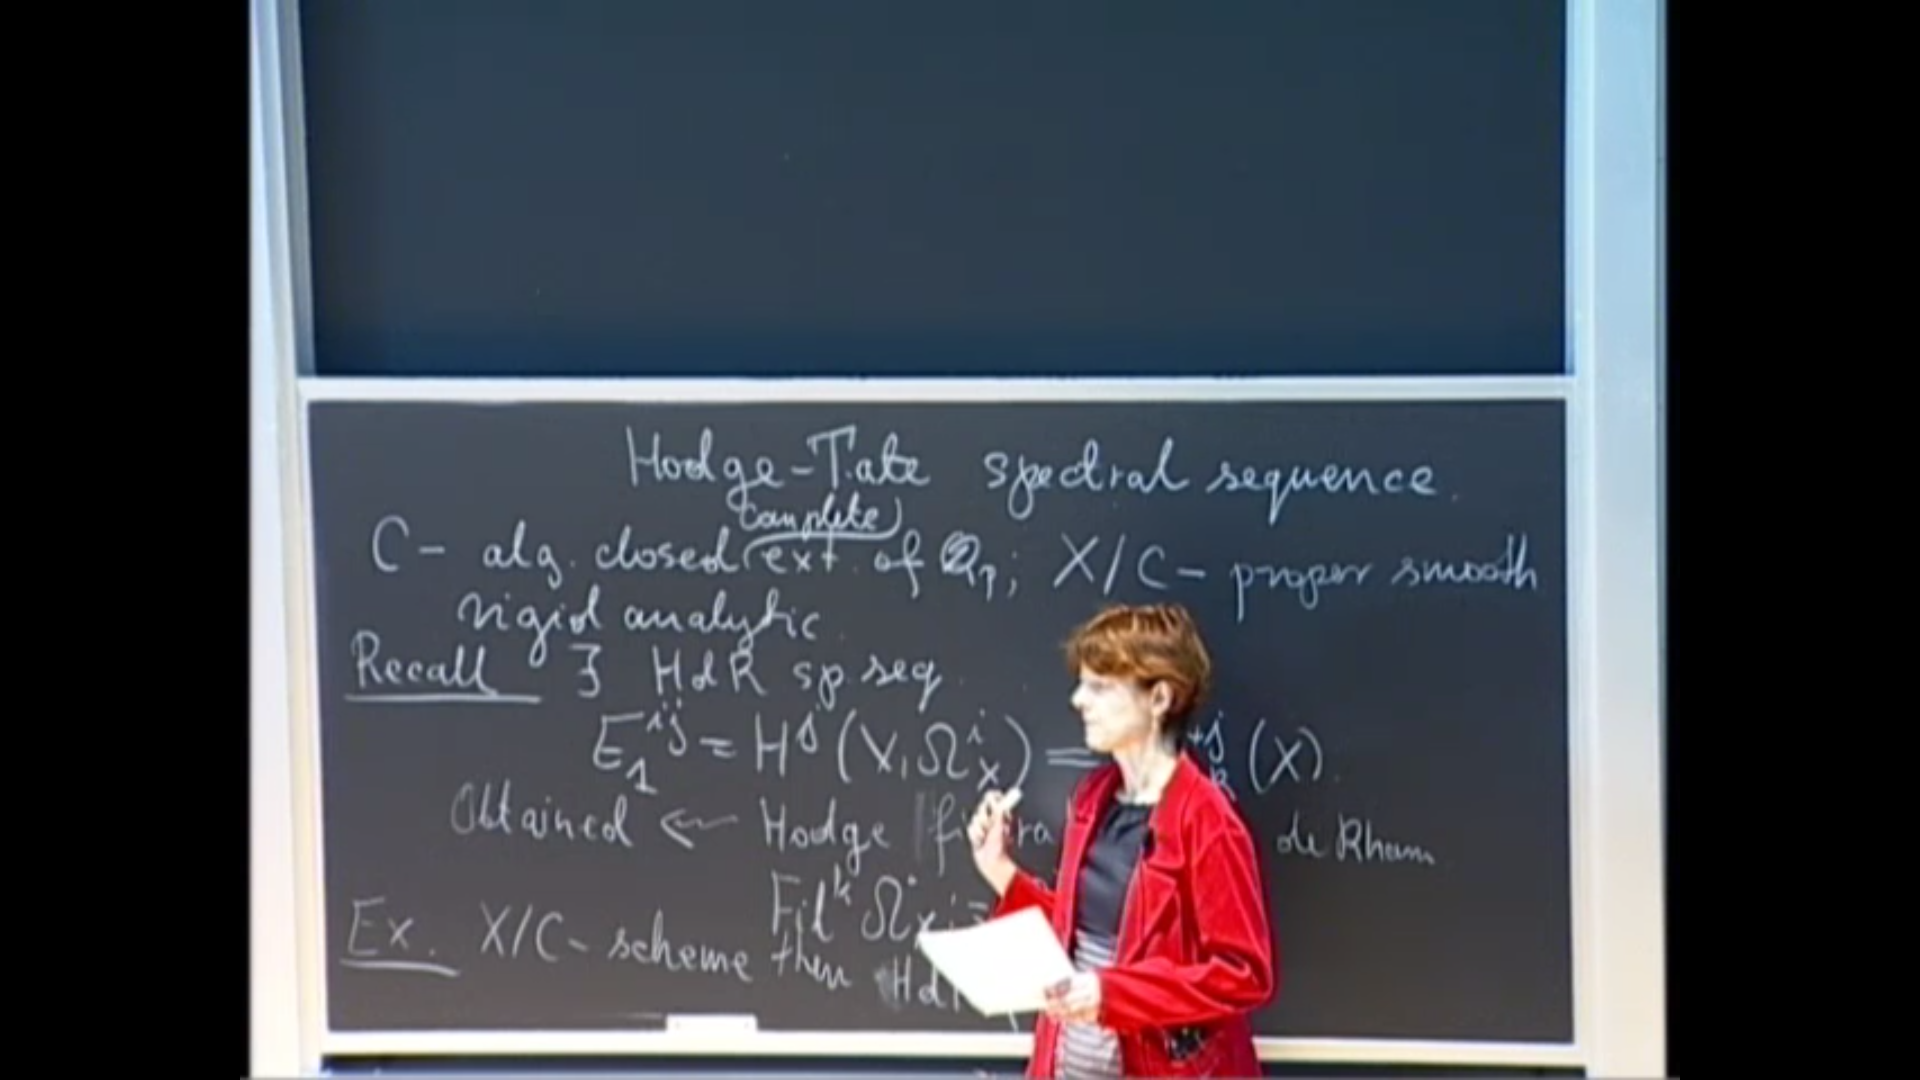 Hodge-Tate spectral sequence.
complete
C - alg. closed ext. of Qp; X/C - proper smooth
rigid analytic.
Recall ∃ HdR sp seq.
E₁^{ij} = H^j (X, Ω^i_X) = +j (X).
Obtained ← Hodge de Rham
Fil^k Ω^•_X
Ex. X/C - scheme then Hd